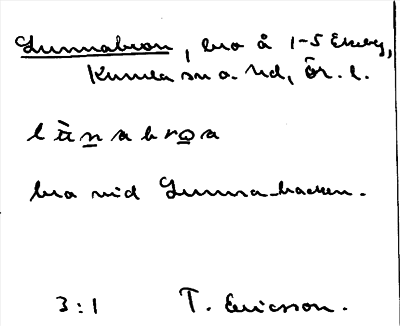 Lunnabron, bro å 1-5 Ekeby,
Kumla sn o. hd, Ör. l.
l ù n a b r o a
bro vid Lunnabacken.
3:1 T. Ericsson.